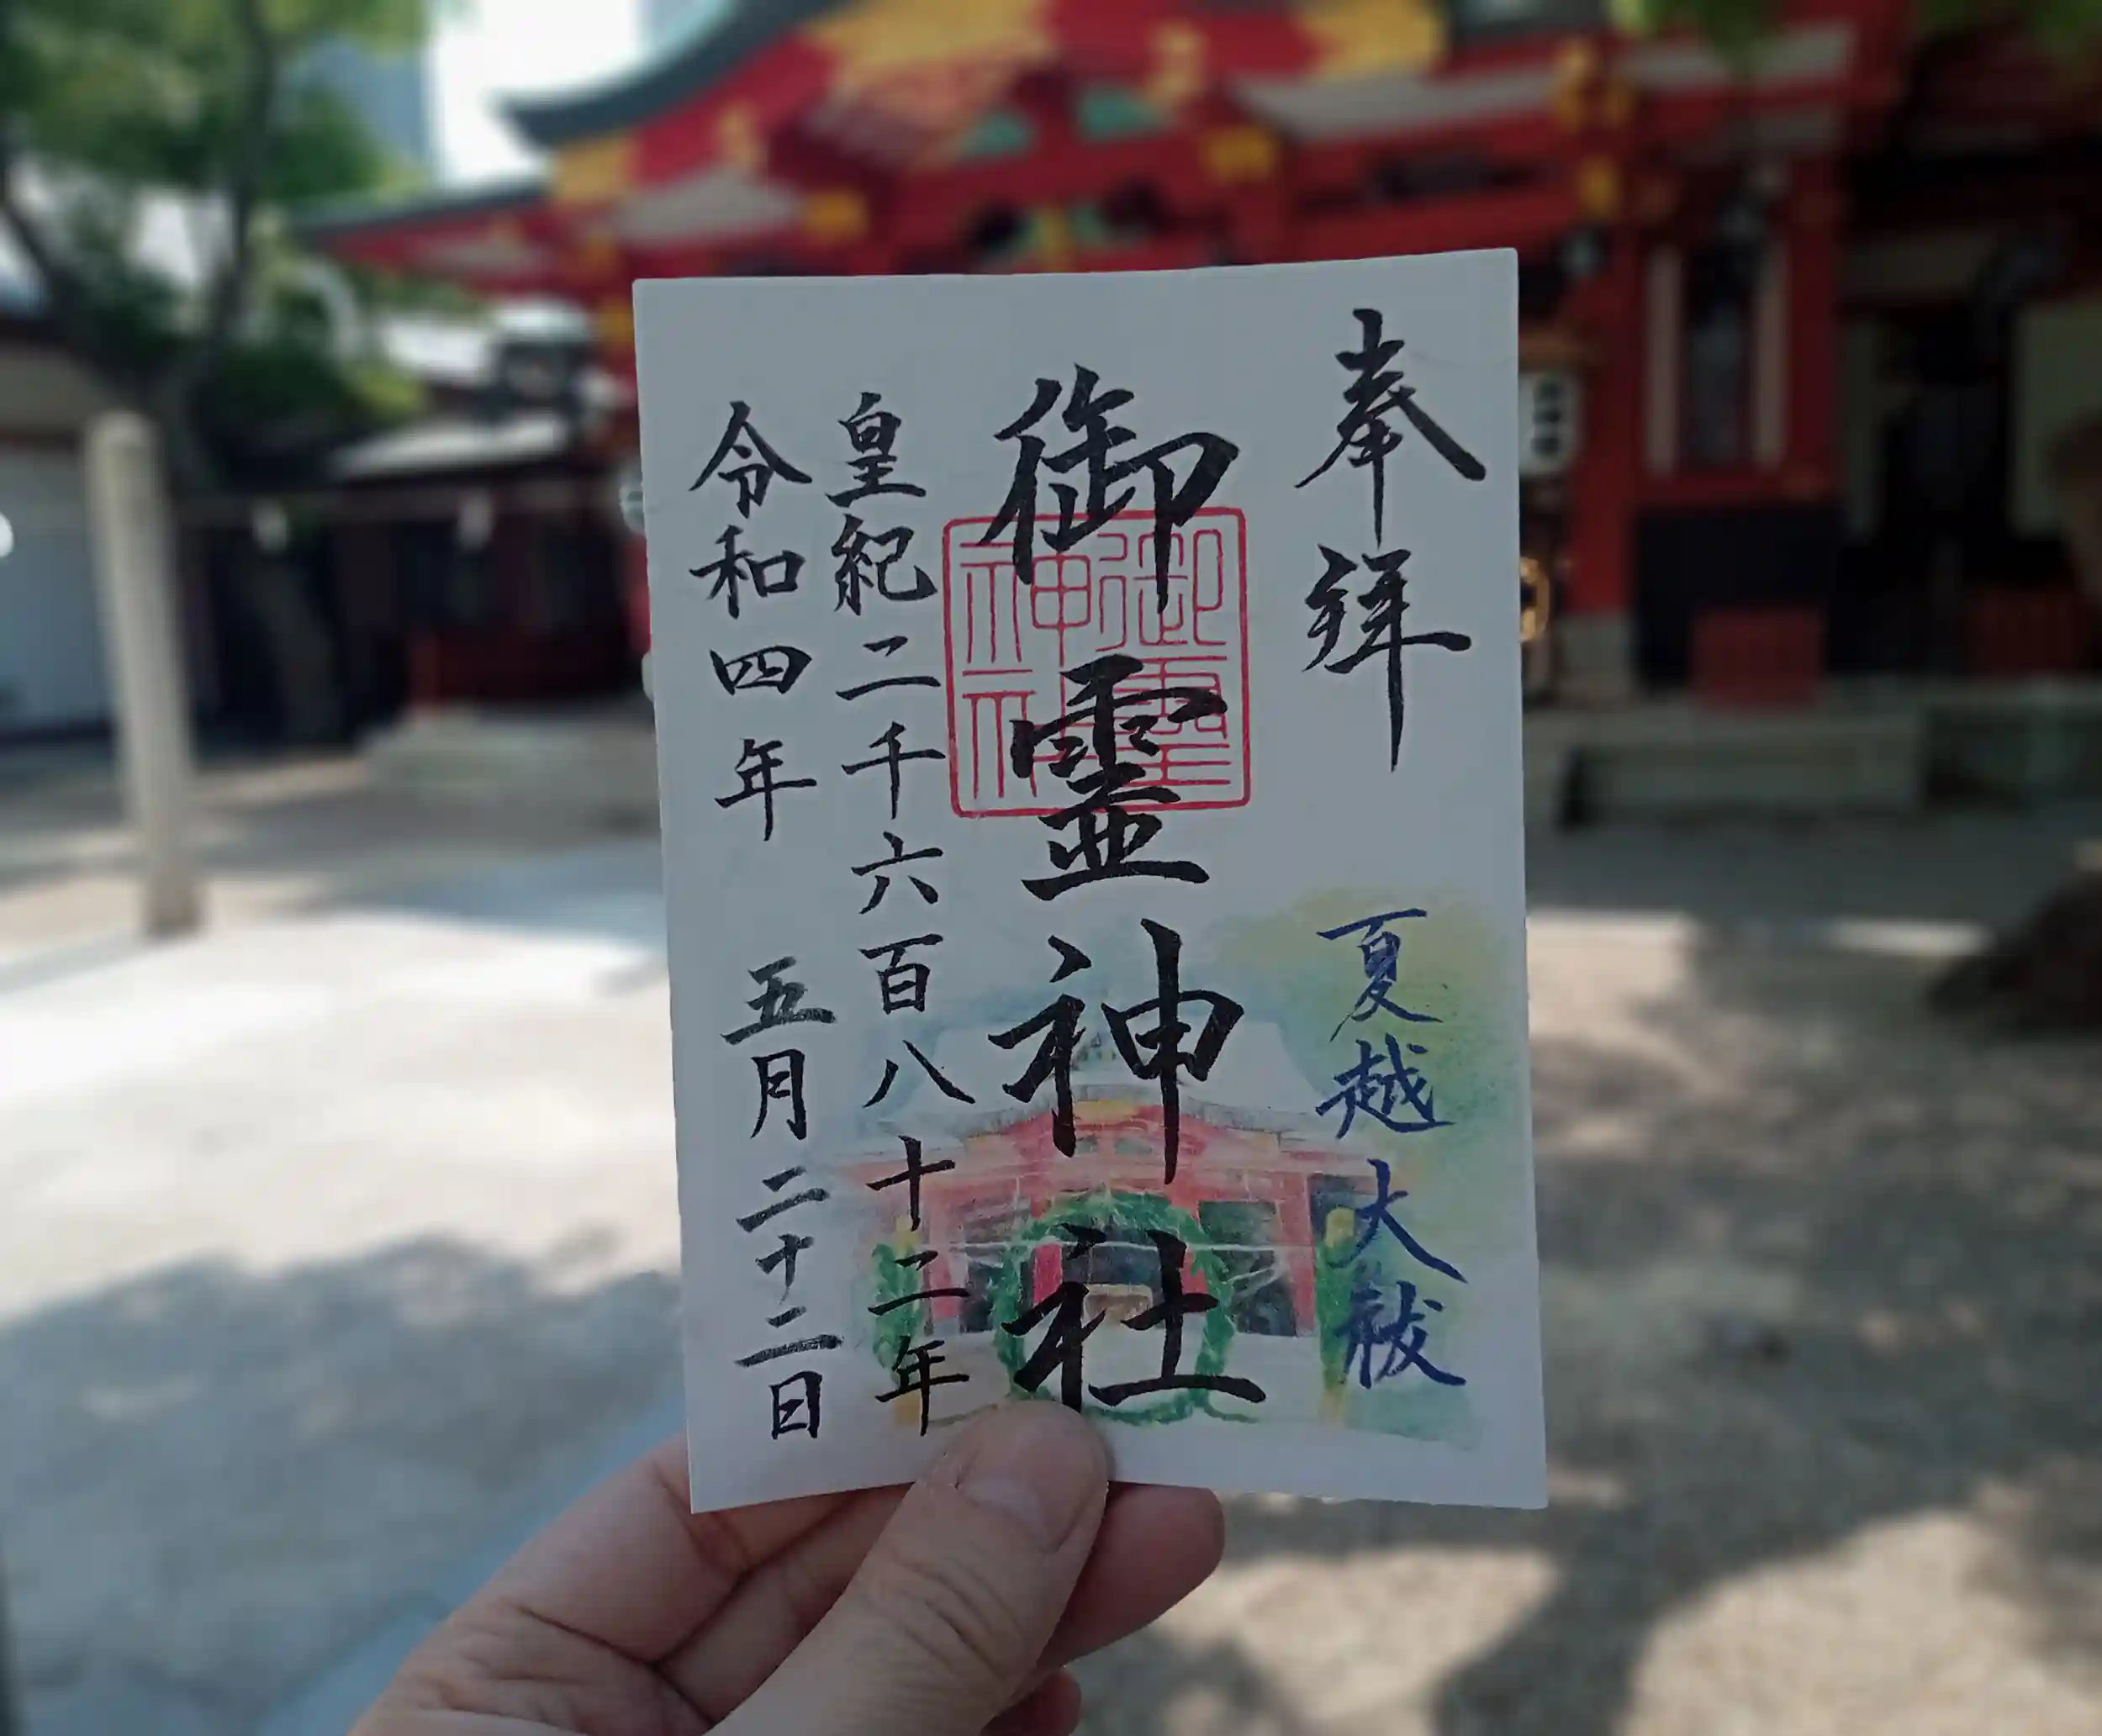 奉拝
夏越大祓
御霊神社
御霊神社
皇紀二千六百八十二年
令和四年 五月二十二日